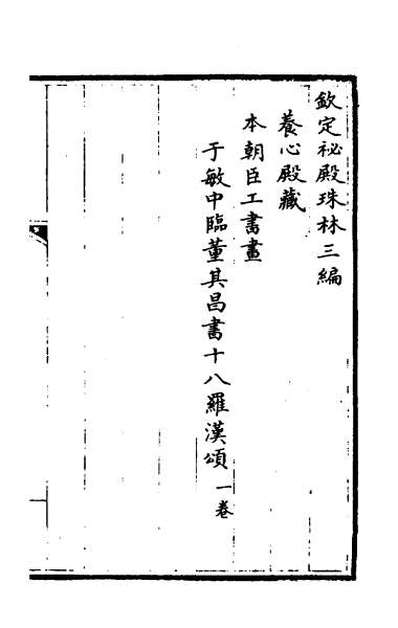 欽定祕殿珠林三編
養心殿藏
本朝臣工書畫
于敏中臨董其昌書十八羅漢頌一卷